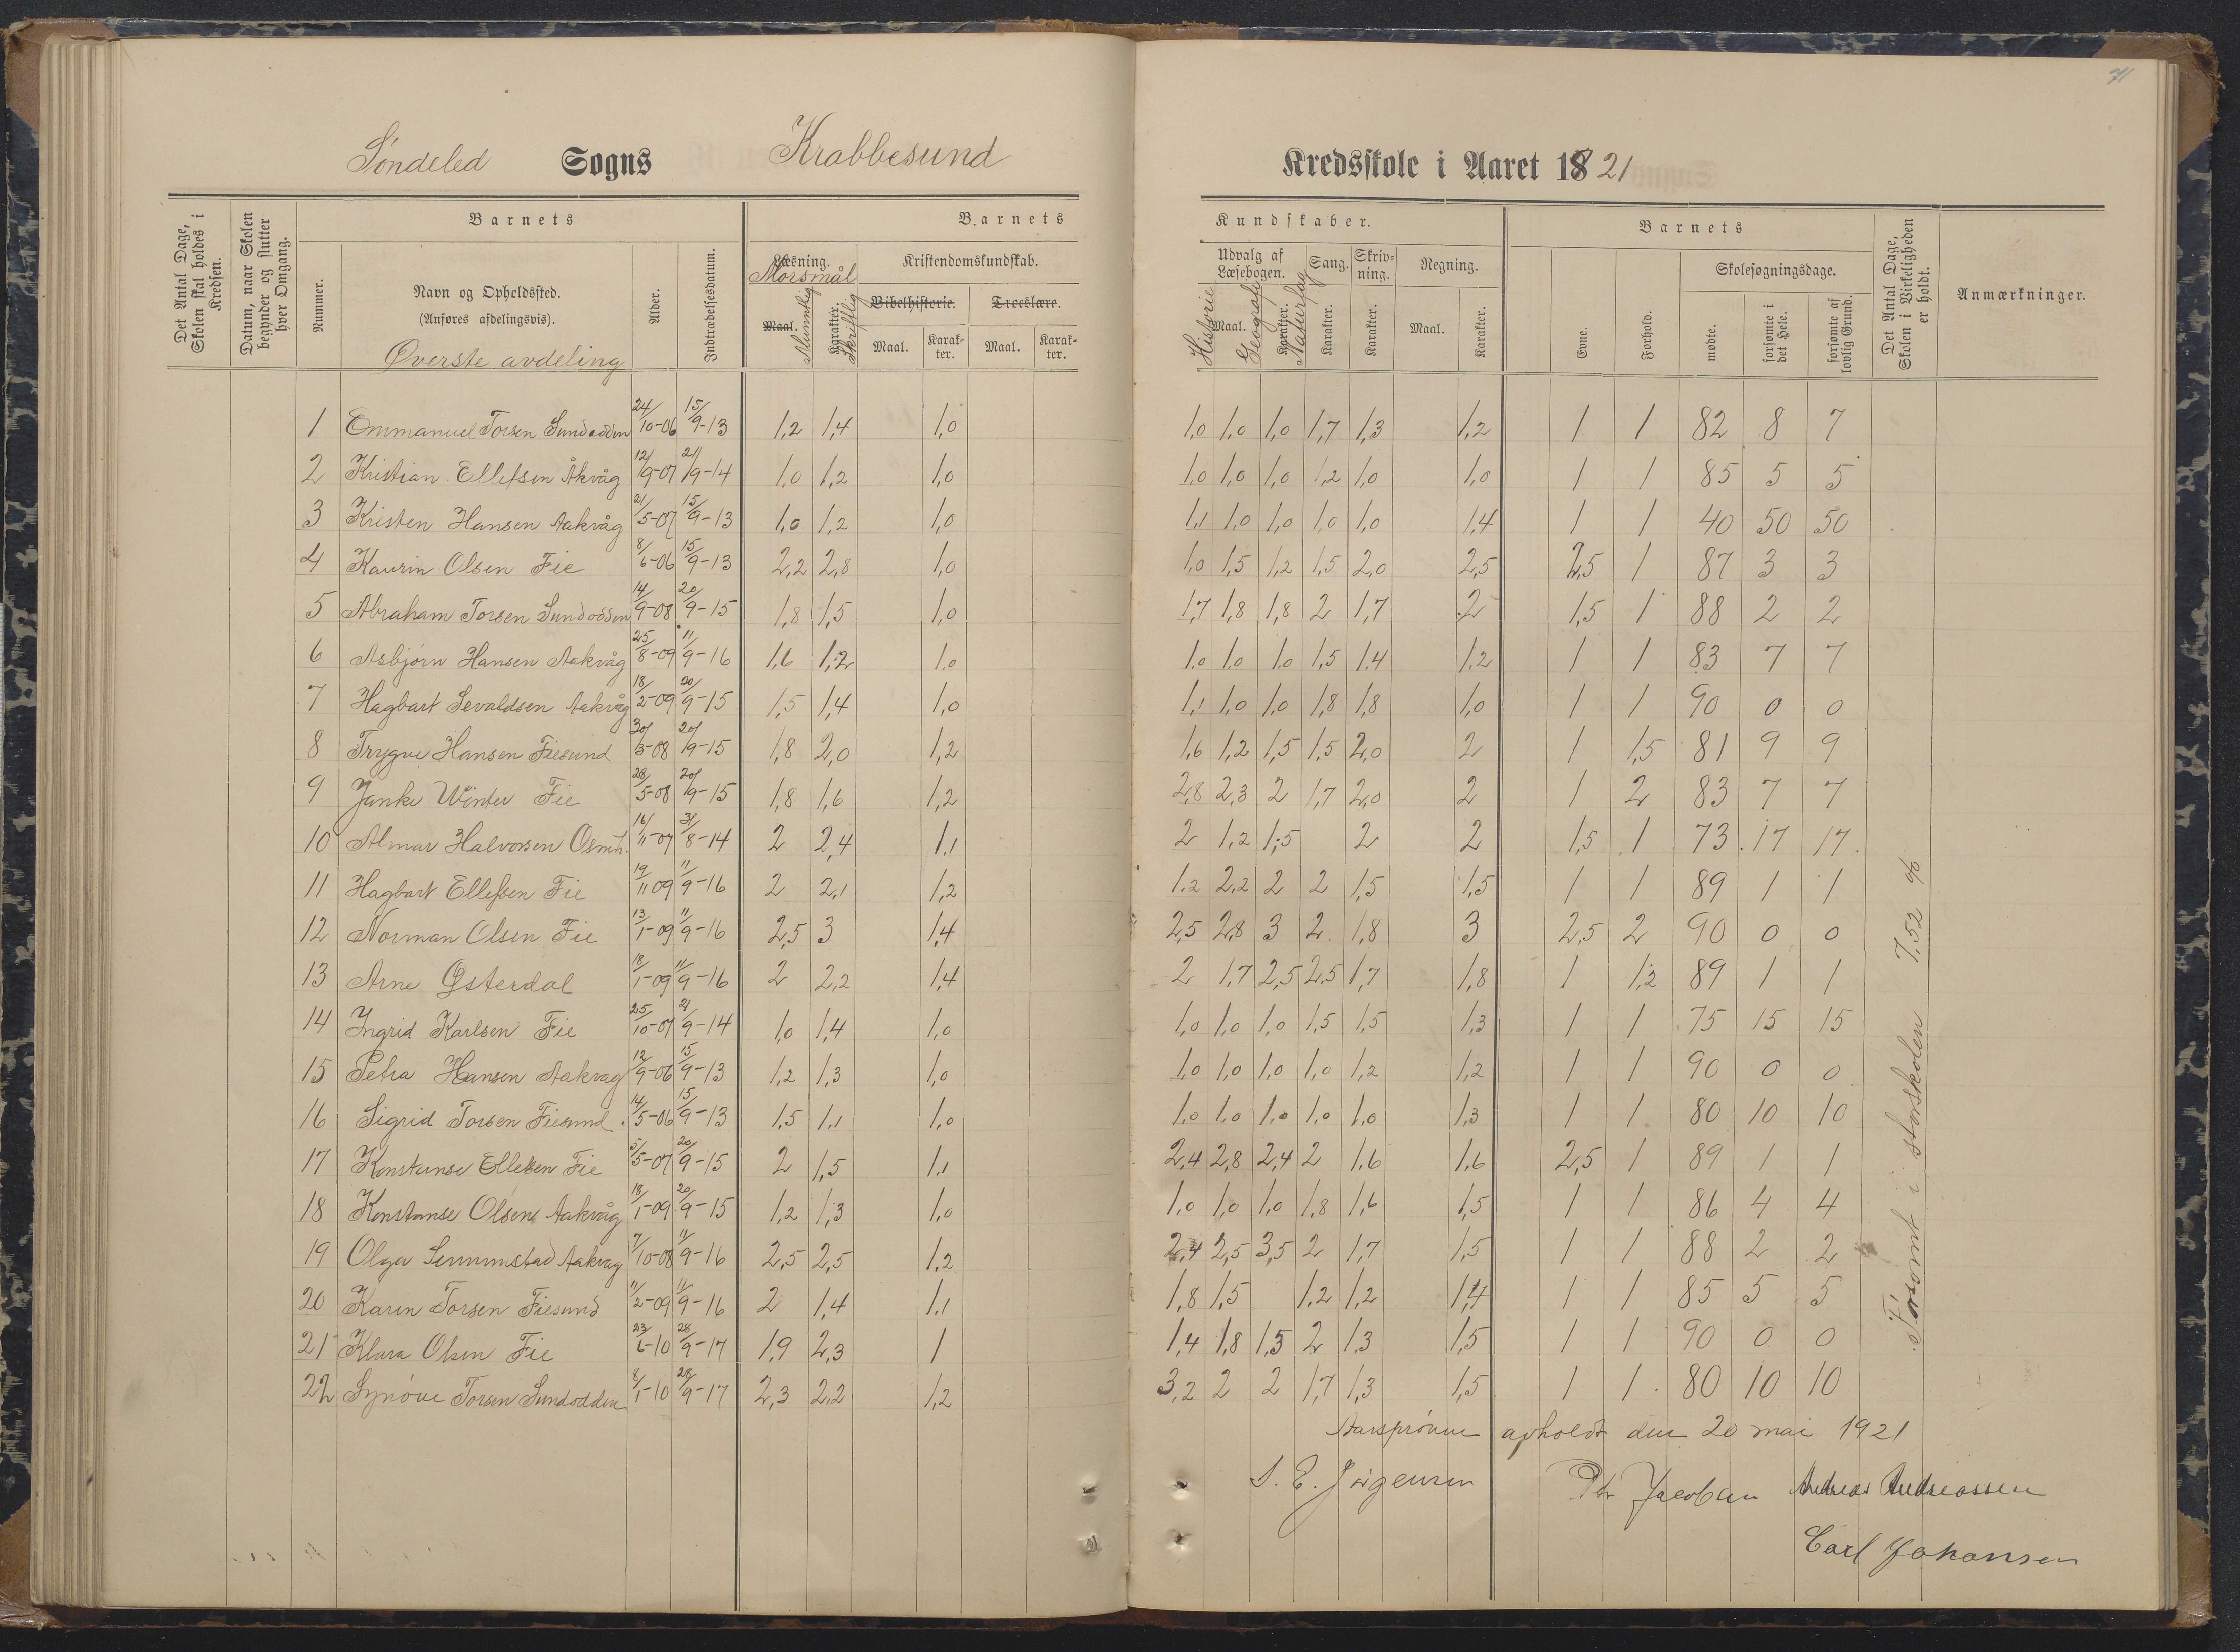 71
Søndeled Sogns Krabbesund Kredsskole i Aaret 1821
Det Antal Dage, Skolen skal holdes i Kredsen.
Datum, naar Skolen begynder og slutter hver Omgang.
Barnets
Nummer.
Navn og Opholdssted.
(Anføres afdelingsvis).
Øverste avdeling
Alder.
Indtrædelsesdatum.
Barnets Kundskaber.
Læsning.
Morsmål
Maal. Muntlig
Karakter. Skriftlig
Kristendomskundskab.
Bibelhistorie. Troeslære.
Maal. Karakter. Maal. Karakter.
Udvalg af Læsebogen.
Historie Maal. Geografi Karakter. Naturfag
Sang. Karakter.
Skrivning. Karakter.
Regning.
Maal. Karakter.
Barnets
Evne.
Forhold.
Skolesøgningsdage.
mødte.
forsømte i det Hele.
forsømte af lovlig Grund.
Det Antal Dage, Skolen i Virkeligheden er holdt.
Anmærkninger.
1 Emmanuel Torsen Sundodden 24/10-06 15/9-13 1,2 1,4 1,0 1,0 1,0 1,0 1,7 1,3 1,2 1 1 82 8 7
2 Kristian Ellefsen Åkvåg 12/9-07 21/9-14 1,0 1,2 1,0 1,0 1,0 1,0 1,2 1,0 1,0 1 1 85 5 5
3 Kristen Hansen Aakvåg 21/5-07 15/9-13 1,0 1,2 1,0 1,1 1,0 1,0 1,0 1,0 1,4 1 1 40 50 50
4 Kaurin Olsen Fie 8/6-06 15/9-13 2,2 2,8 1,0 1,0 1,5 1,2 1,5 2,0 2,5 2,5 1 87 3 3
5 Abraham Torsen Sundodden 14/9-08 20/9-15 1,8 1,5 1,0 1,7 1,8 1,8 2 1,7 2 1,5 1 88 2 2
6 Asbjørn Hansen Aakvåg 25/8-09 11/9-16 1,6 1,2 1,0 1,0 1,0 1,0 1,5 1,4 1,2 1 1 83 7 7
7 Hagbart Sevaldsen Aakvåg 18/2-09 20/9-15 1,5 1,4 1,0 1,1 1,0 1,0 1,8 1,8 1,0 1 1 90 0 0
8 Trygve Hansen Fiesund 30/3-08 20/9-15 1,8 2,0 1,2 1,6 1,2 1,5 1,5 2,0 2 1 1,5 81 9 9
9 Janke Winter Fie 28/5-08 20/9-15 1,8 1,6 1,2 2,8 2,3 2 1,7 2,0 2 1 2 83 7 7
10 Almar Halvorsen 16/11-07 31/8-14 2 2,4 1,1 2 1,2 1,5 2 2 1,5 1 73 17 17
11 Hagbart Ellefsen Fie 19/11 09 11/9-16 2 2,1 1,2 1,2 2,2 2 2 1,5 1,5 1 1 89 1 1
12 Norman Olsen Fie 13/1-09 11/9-16 2,5 3 1,4 2,5 2,8 3 2 1,8 3 2,5 2 90 0 0
13 Arne Østerdal 18/1-09 11/9-16 2 2,2 1,4 2 1,7 2,5 2,5 1,7 1,8 1 1,2 89 1 1
14 Ingrid Karlsen Fie 25/10-07 21/9-14 1,0 1,4 1,0 1,0 1,0 1,0 1,5 1,5 1,3 1 1 75 15 15
15 Petra Hansen Aakvag 12/9-06 15/9-13 1,2 1,3 1,0 1,0 1,0 1,0 1,0 1,2 1,2 1 1 90 0 0
16 Sigrid Torsen Fiesund 14/5-06 15/9-13 1,5 1,1 1,0 1,0 1,0 1,0 1,0 1,0 1,3 1 1 80 10 10
17 Konstanse Ellefsen Fie 5/5-07 20/9-15 2 1,5 1,1 2,4 2,8 2,4 2 1,6 1,6 2,5 1 89 1 1
18 Konstanse Olsen Aakvåg 18/1-09 20/9-15 1,2 1,3 1,0 1,0 1,0 1,0 1,8 1,6 1,5 1 1 86 4 4
19 Olga Aakvag 7/10-08 11/9-16 2,5 2,5 1,2 2,4 2,5 3,5 2 1,7 1,5 1 1 88 2 2
20 Karen Torsen Fiesund 11/2-09 11/9-16 2 1,4 1,1 1,8 1,5 1,2 1,2 1,4 1 1 85 5 5
21 Klara Olsen Fie 23/6-10 28/9-17 1,9 2,3 1 1,4 1,8 1,5 2 1,3 1,5 1 1 90 0 0
22 Synøve Torsen Sundodden 8/1-10 28/9-17 2,3 2,2 1,2 3,2 2 2 1,7 1,3 1,5 1 1 80 10 10
Forsømt i storskolen 7,52 %
Aarsprøven avholdt den 20 mai 1921
S. E. Jørgensen Ptr Jacobsen Andreas Andreassen
Carl Johansen